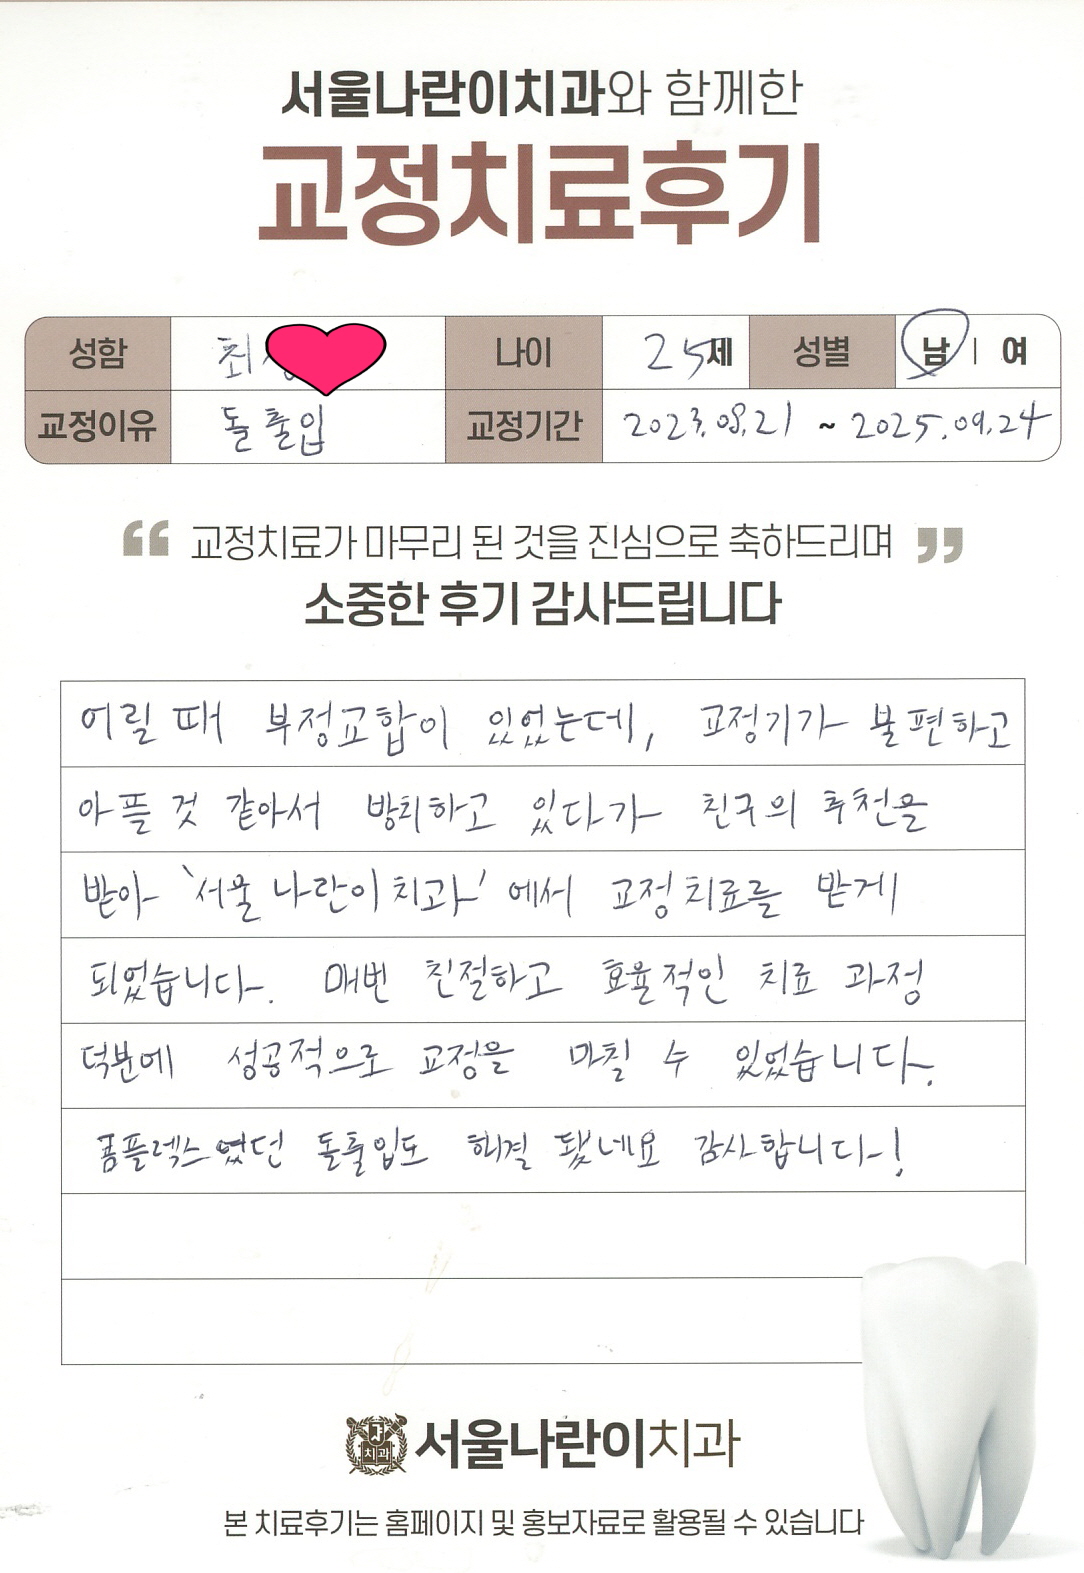 서울나란이치과와 함께한
교정치료후기
성함 최 나이 25세 성별 남 | 여
교정이유 돌출입 교정기간 2023.08.21 ~ 2025.09.24
“ 교정치료가 마무리 된 것을 진심으로 축하드리며 ”
소중한 후기 감사드립니다
어릴 때 부정교합이 있었는데, 교정기가 불편하고
아플 것 같아서 방치하고 있다가 친구의 추천을
받아 '서울나란이치과' 에서 교정치료를 받게
되었습니다. 매번 친절하고 효율적인 치료 과정
덕분에 성공적으로 교정을 마칠 수 있었습니다.
콤플렉스였던 돌출입도 해결 됐네요 감사합니다!
치과
서울나란이치과
본 치료후기는 홈페이지 및 홍보자료로 활용될 수 있습니다